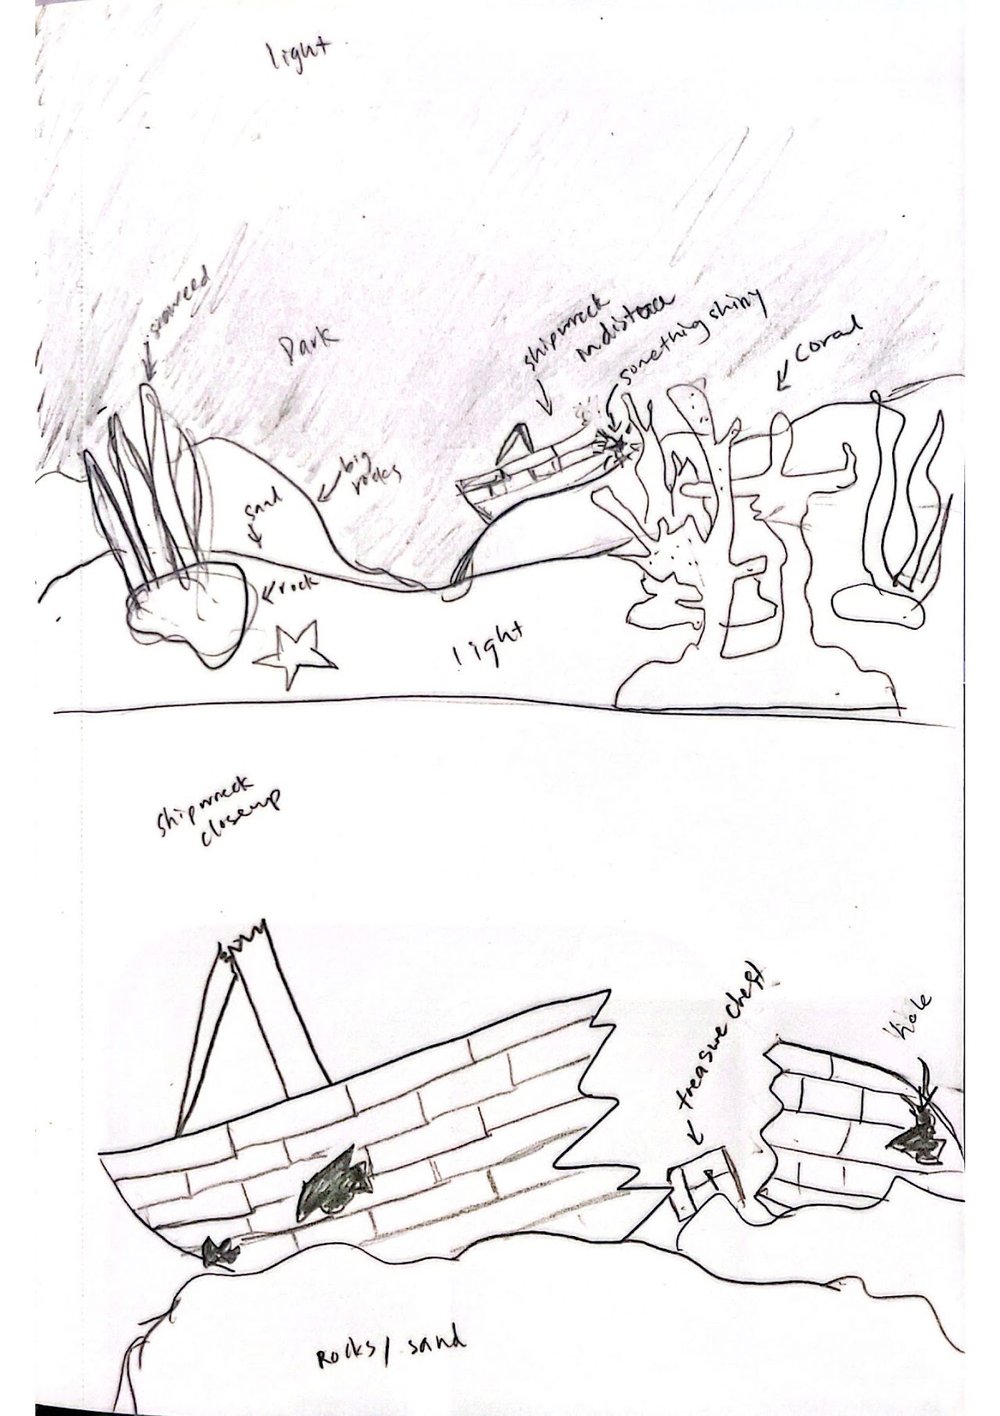 light
seaweed
Dark
shipwreck
in distance
something shiny
coral
big
rocks
sand
rock
light
shipwreck
closeup
treasure chest
hole
Rocks / sand